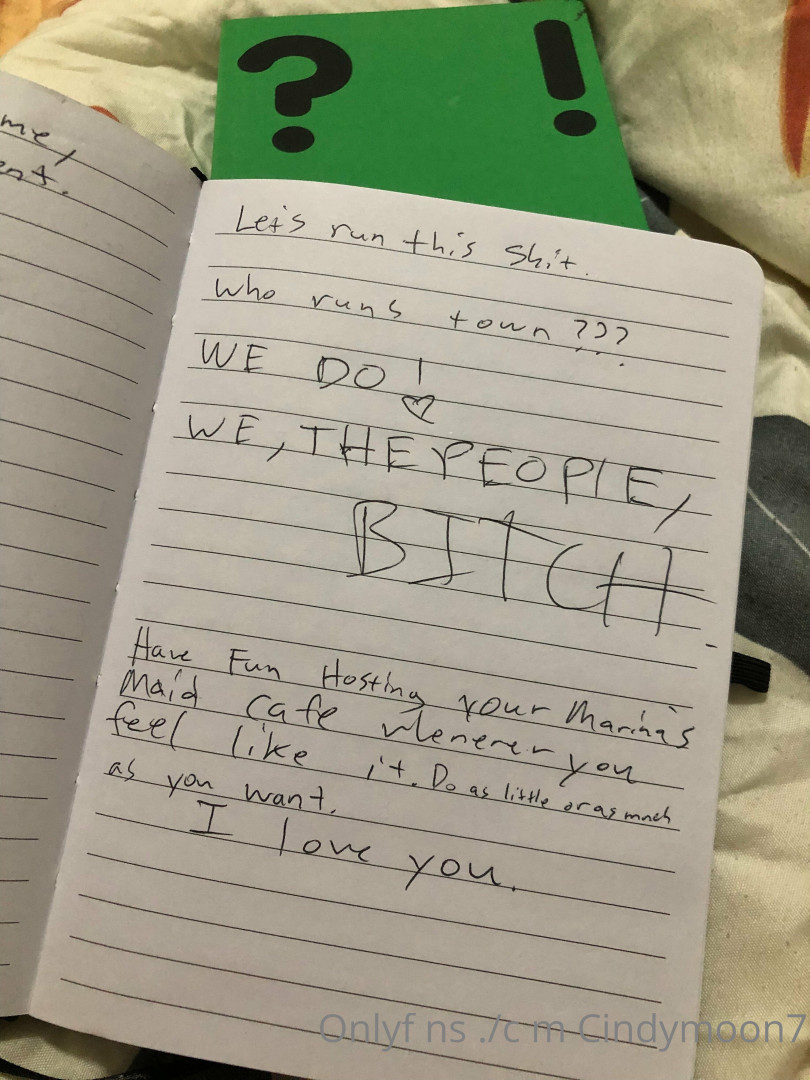 me,
ent.
? !
Let's run this shit.
Who runs town???
WE DO!
WE, THE PEOPLE,
BITCH.
Have Fun Hosting your Marina's
Maid Cafe whenever you
feel like it. Do as little or as much
as you want.
I love you.
Onlyf ns ./c m Cindymoon7